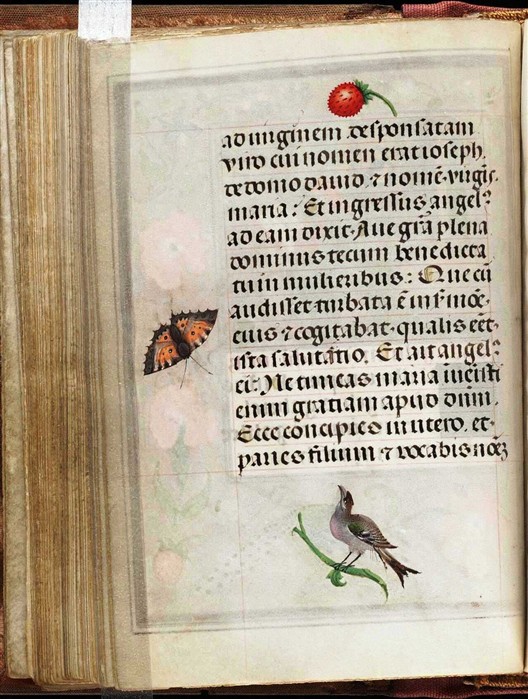 ad virginem desponsatam
viro cui nomen erat ioseph.
de domo david. ⁊ nomē virgīs
maria: Et ingressus angelꝰ
ad eam dixit. Ave grā plena
dominus tecum benedicta
tu in mulieribus: Que cū
audisset turbata ē in ẜmōe
eius ⁊ cogitabat qualis eēt
ista salutatio. Et ait angelꝰ
ei: Ne timeas maria īvēisti
enim gratiam apud dūm.
Ecce concipies in utero. et
paries filium ⁊ vocabis nom̄